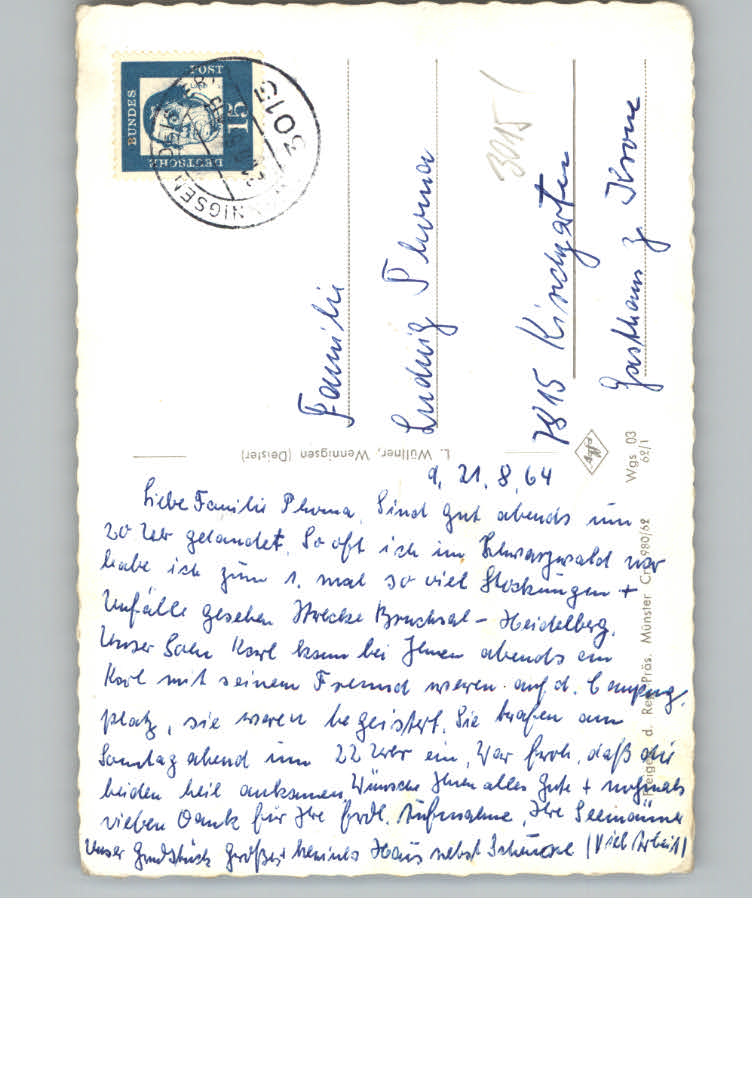 DEUTSCHE
BUNDES
POST
15
3013
3015
Familie
Ludwig Thoma
7815 Kirchgarten
Gasthaus z Krone
L. Wüllner, Wennigsen (Deister)
Wgs 03
62/1
Freigeg. d. Reg.-Präs. Münster Cr. 980/62
d, 21. 8. 64
Liebe Familie Thoma. Sind gut abends um
20 Uhr gelandet. So oft ich im Schwarzwald war
habe ich zum 1. mal so viel Stockungen +
Unfälle gesehen Strecke Bruchsal - Heidelberg.
Unser Sohn Karl kam bei Ihnen abends an
Karl mit seinem Freund waren auf d. Camping
platz, sie waren begeistert. Sie trafen am
Sonntag abend um 22 Uhr ein. War froh, daß die
beiden heil ankamen. Wünsche Ihnen alles Gute + nochmals
vielen Dank für Ihre frdl. Aufnahme, Ihre
Unser Grundstück größer kleines Haus nebst Scheune (Viel Arbeit)